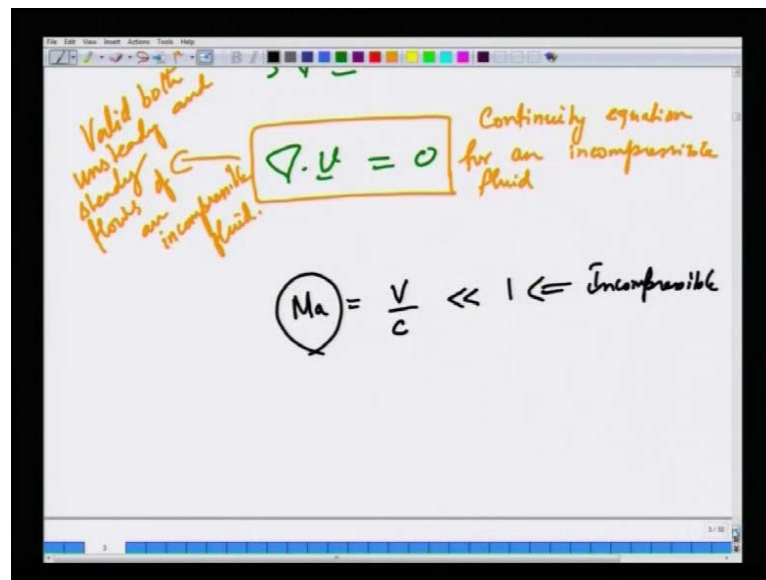 File Edit View Insert Actions Tools Help
Valid both
unsteady and
steady
flows of
an
incompressible
fluid.
∇. v = 0
Continuity equation
for an incompressible
fluid
Ma = V/c << 1 <= Incompressible
3